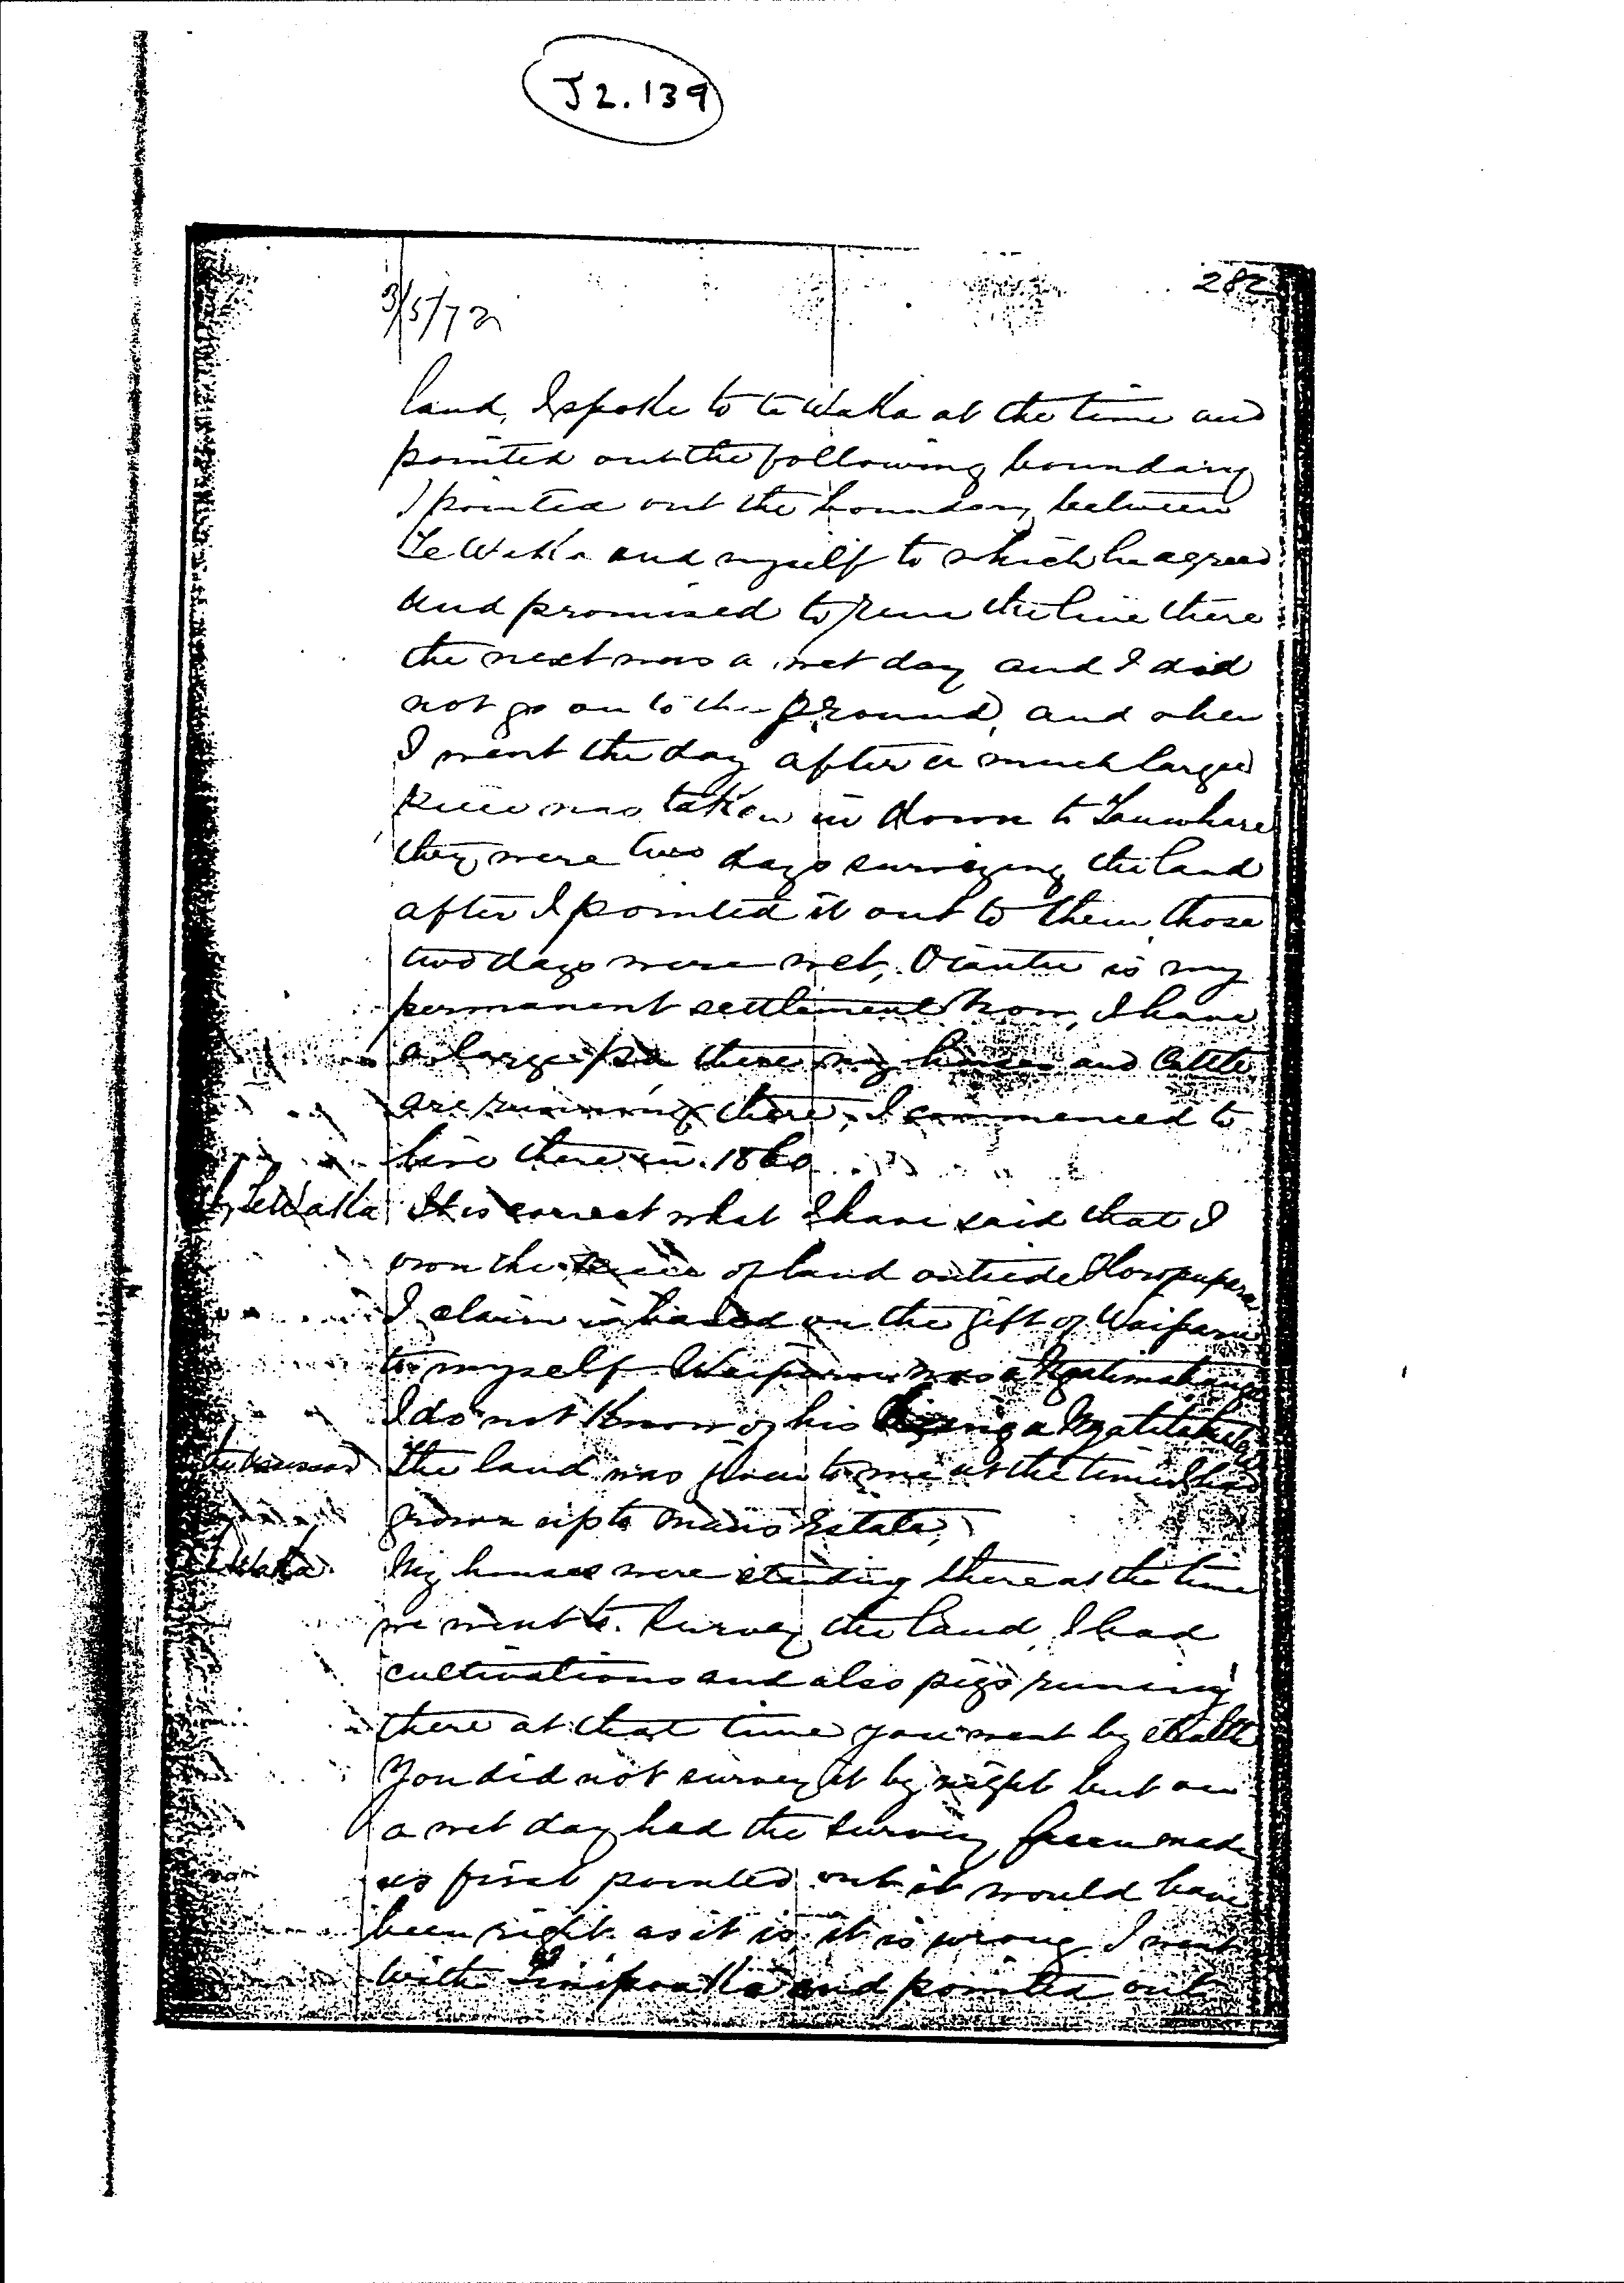 J2.139
282
3/5/72
land, I spoke to te Waka at the time and
pointed out the following boundary
I pointed out the boundary between
Te Waka and myself to which he agreed
and promised to run the line there
the next was a wet day and I did
not go on to the ground, and when
I went the day after a much larger
piece was taken in down to Tauwhare
they were two days surveying the land
after I pointed it out to them, those
two days were wet, is my
permanent settlement now, I have
a large pa there my houses and Cattle
are running there, I commenced to
live there in 1860
by Te Waka It is correct what I have said that I
own the piece of land outside
I claim is based on the gift of
to myself was a
I do not know of his being a
the Assessor The land was given to me at the time I had
grown up to mans Estate,
Te Waka My houses were standing there at the time
we went to survey the land, I had
cultivations and also pigs runing
there at that time you went by stealth
You did not survey it by night but on
a wet day had the survey been made
as first pointed out it would have
been right as it is, it is wrong I went
with and pointed out